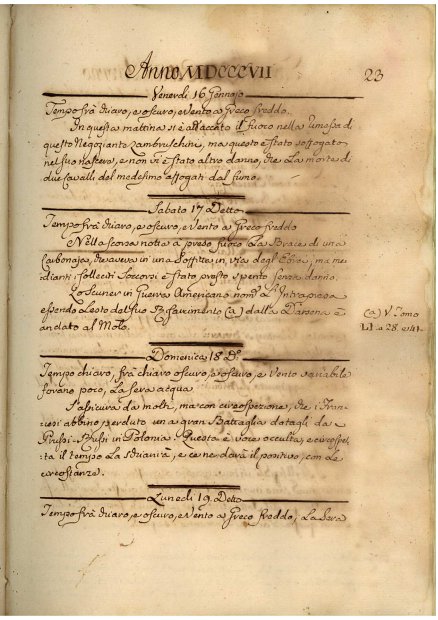 Anno MDCCCVII
23
Venerdi 16 Gennajo
Tempo frà chiaro, e oscuro, e Vento a Greco freddo.
In questa mattina si è allacciato il fuoco nella rimessa di
questo Negoziante Sambruschini, ma questo è stato soffogato
nel suo nascere, e non vi è stato altro danno, che La morte di
due Cavalli del medesimo affogati dal fumo.
Sabato 17 Detto
Tempo frà chiaro, e oscuro, e Vento a Greco freddo
Nella scorsa notte a preso fuoco La Brace di una
Carbonaja, che aveva in una Soffitta in via degl'Ebrei, ma me-
dianti i solleciti Soccorsi è stato presto spento senza danno.
Lo Scuner in Guerra Americano nom.º L'Intrapresa
essendo Lesto del suo Risarcimento (a) dalla Darsena è
andato al Molo.
(a) V. Tomo
28. e 41.
Domenica 18 D.º
Tempo chiaro, frà chiaro oscuro, e oscuro, e Vento variabile
forano poco, La sera acqua.
S'assicura da molti, ma con circospezione, che i Fran-
cesi abbino perduto una gran Battaglia datagli da
Prussi-Russi in Polonia. Questa è voce occulta, e circospet-
ta il tempo La schiarirà, e ce ne darà il positivo, con Le
circostanze.
Lunedi 19 Detto
Tempo frà chiaro, e oscuro, e Vento a Greco freddo, La Sera